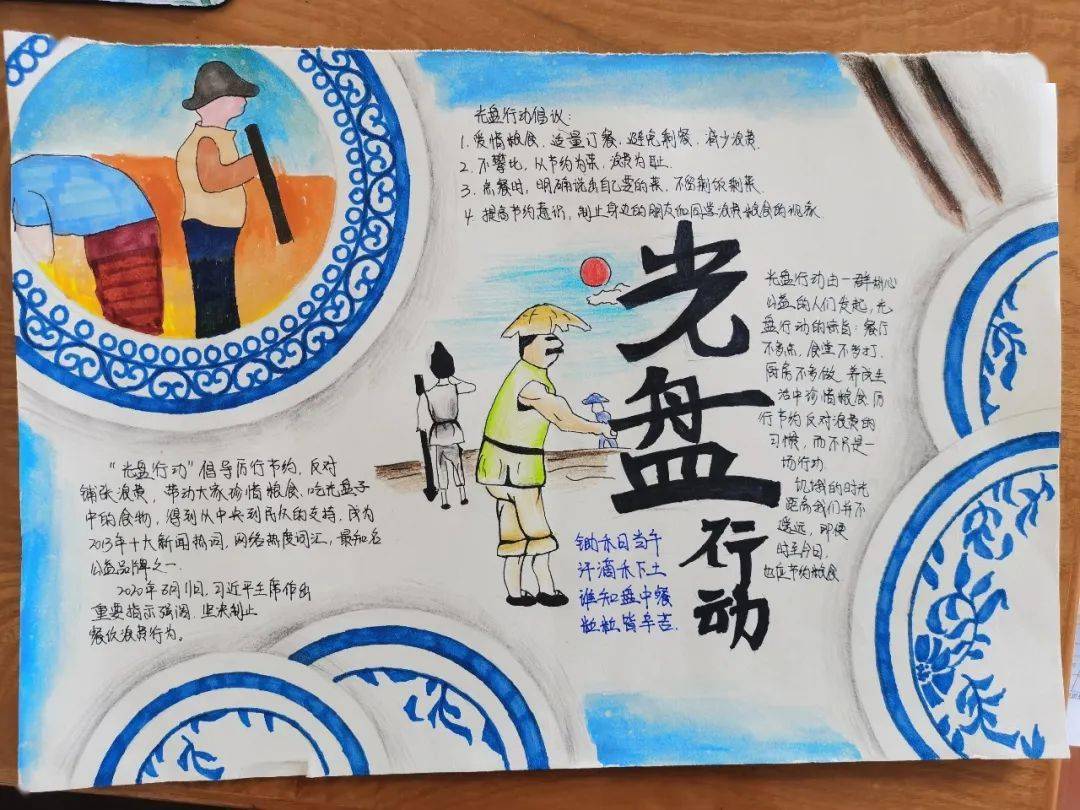 光盘行动倡议：
1. 爱惜粮食、适量订餐、避免剩餐、减少浪费.
2. 不攀比，从节约为荣，浪费为耻.
3. 点餐时，明确说出自己要的菜，不留剩饭剩菜.
4. 提高节约意识，制止身边的朋友和同学浪费粮食的现象.
光盘
行动
光盘行动由一群热心
公益的人们发起，光
盘行动的宗旨：餐厅
不多点，食堂不多打，
厨房不多做. 养成生
活中珍惜粮食厉
行节约反对浪费的
习惯，而不只是一
场行动.
饥饿的时光
距离我们并不
遥远，即使
时至今日，
也应节约粮食.
“光盘行动”倡导厉行节约，反对
铺张浪费，带动大家珍惜粮食、吃光盘子
中的食物，得到从中央到民众的支持，成为
2013年十大新闻热词，网络热度词汇，最知名
公益品牌之一.
2020年8月11日，习近平主席作出
重要指示强调，坚决制止
餐饮浪费行为。
锄禾日当午
汗滴禾下土
谁知盘中餐
粒粒皆辛吉.